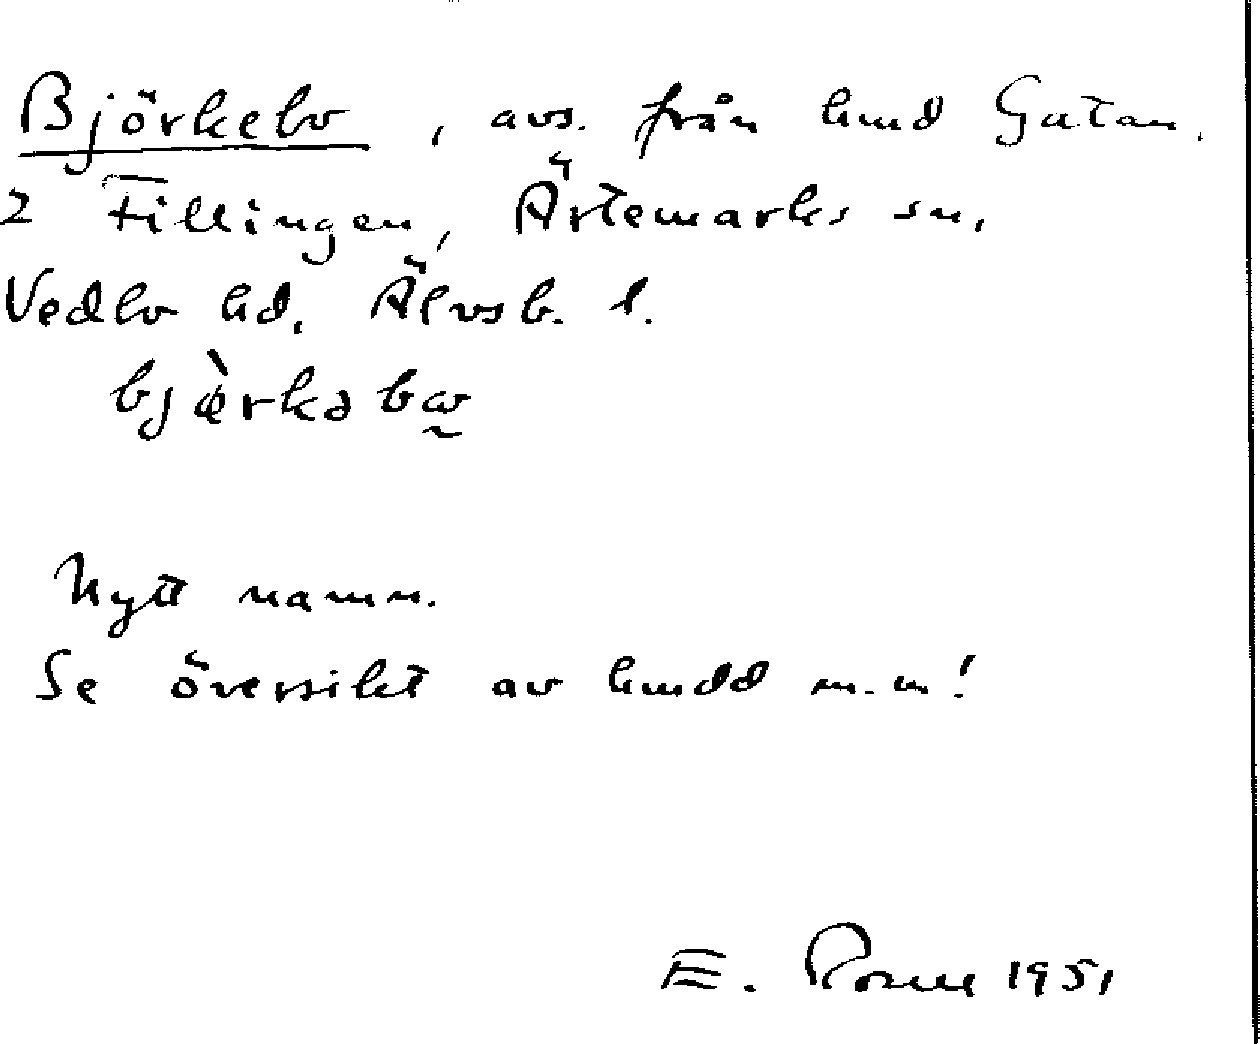 Björkebo, avs. från hmd Gatan.
2 Fillingen, Ärtemarks sn,
Vedbo hd, Älvsb. l.
Nytt namn.
Se översikt av hmdd m.m!
E. 1951